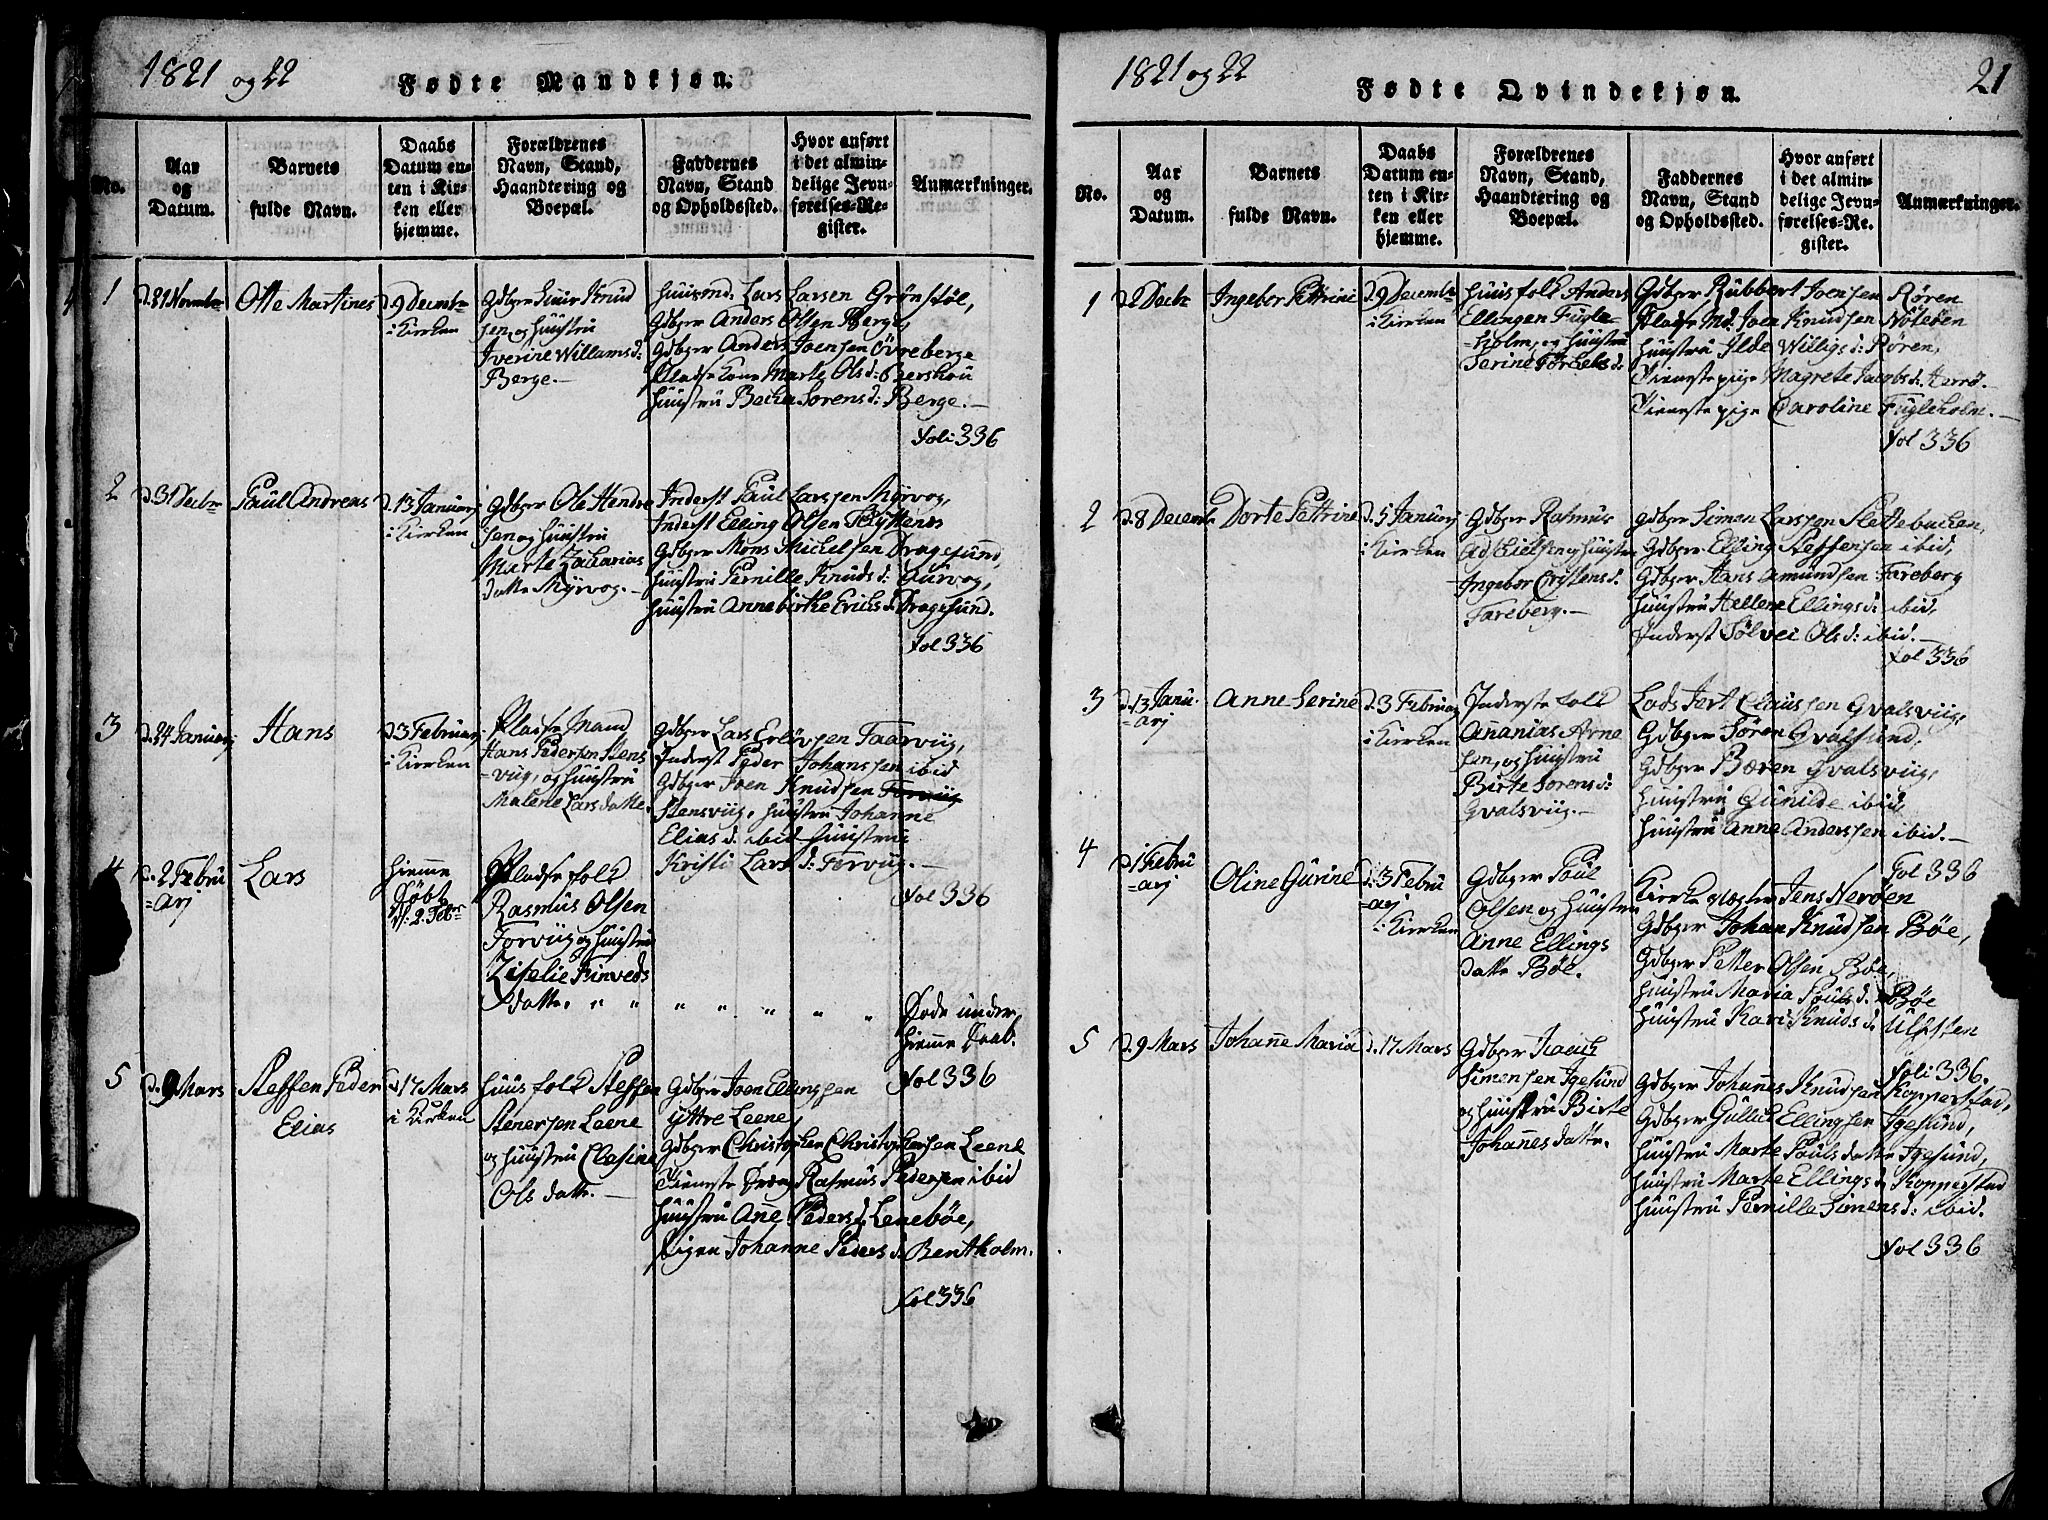 1821 og 22
Fødte Mandkjøn.
No.
Aar og Datum.
Barnets fulde Navn.
Daabs Datum enten i Kirken eller hjemme.
Forældrenes Navn, Stand, Haandtering og Boepæl.
Faddernes Navn, Stand og Opholdssted.
Hvor anført i det almindelige Jevnførelses-Register.
Anmærkninger.
1
d. 21 Novembr
Otte Martines
d. 9 Decembr
i Kirken
Gdbger Knud
sen og Hüüstrü
Iverine Willamsd:
Berge.—
Hüüsmd. Lars Larsen Grönstöe,
Gdbger Anders Olsen Berge,
Gdbger Anders Joensen Övreberge
Pladsekone Marte Olsd: Bershou
Hüüstrü Sorensd: Berge.—
Fol: 336
2
d. 31 Decbr
Paul Andreas
d. 13 Januarj
i Kierken
Gdbger Ole Hendre
sen og Hüüstrü
Marte Zacharias
datte Myrvog.—
Inderst Paul Larssen Myrvog,
Inderst Elling Olsen Flyttenes
Gdbger Mons Michelsen Dragesund,
Hüüstrü Pernille Knudsd: Aurvog,
Hüüstrü Annebirthe Ericksd: Dragesund.
Fol 336
3
d. 24 Januarj
Hans
d 3 Februarj
i Kierken
Pladse Mand
Hans Pedersen Stens
-viig, og Hüüstrü
Malene Larsdatte.
Gdbger Lars Erlövsen Taarviig,
Inderst Peder Johanssen ibid
Gdbger Joen Knudsen Torviig
Stensviig, Hüüstrü Johanne
Eliasd: ibid Hüüstrü
Kristi Larsd: Torviig.—
Fol 336
4
d. 2 Febru
=arj
Lars
hiemme
Döbt
d: 2. Febr
Pladsefolk
Rasmus Olsen
Torviig og Hüüstrü
Ziselie Rinveds
datte. " " " " " " "
Döde under
hiemme Daab.
Fol 336
5
d. 9 Mars
Steffen Peder
Elias
d 17 Mars
i Kirken
Hüüsfolk Steffen
Stenersen Leene
og Hüüstrü Clasine
Olsdatte.—
Gdbger Joen Ellingsen
yttre Leene,
Gdbger Christopher Christophersen Leene
Tieneste Dreng Rasmus Pedersen ibid
Hüüstrü Ane Pedersd: Lenebøe,
Pigen Johanne Pedersd: Bentholm.
Fol 336
1821 og 22
Fødte Qvindekjøn.
21
No.
Aar og Datum.
Barnets fulde Navn.
Daabs Datum enten i Kirken eller hjemme.
Forældrenes Navn, Stand, Haandtering og Boepæl.
Faddernes Navn, Stand og Opholdssted.
Hvor anført i det almindelige Jevnførelses-Register.
Anmærkninger.
1
d 2 Decbr
Ingebor Pettrine
d 9 Decembr
i Kierken
Hüüsfolk Anders
Ellingen Fugle-
holm, og Hüüstrü
Serine Torkelsd:
Gdbger Rubbert Joensen Røren
Pladse Md. Joen Knudsen Nöteöen
Hüüstrü Ilde Willigsd: Røren,
Tieneste pige Magrete Jacobsd: Herrö.—
Tieneste pige Caroline Fugleholm.—
Fol 336
2
d. 8 Decembr
Dorte Pettrine
d 5 Januarj
i Kierken
Gdbger Rasmus
og Hüüstrü
Ingebor Cristensd:
Fareberg.—
Gdbger Simon Larssen Slettebacken,
Gdbger Elling Steffensen ibid,
Gdbger Hans Amundsen Fareberg
Hüüstrü Hellene Ellingsd: ibid,
Inderst Sölvei Olsd: ibid.—
Fol 336
3
d. 13 Janu-
=arj
Anne Serine
d. 3 Februarj
i Kierken
Inderstefolk
Ananias Arne
sen, og Hüüstrü
Birte Sorensd:
Qvalsviig.—
Lods Jert Claussen Qvalsviig,
Gdbger Sören Qvalsund,
Gdbger Bæren Qvalsviig,
Hüüstrü Gunilde ibid,
Hüüstrü Anne Anderssen ibid.—
Fol 336
4
d. 1 Febru
=arj
Oline Gurine
d. 3 Febru
=arj
i Kierken
Gdbger Poul
Olsen og Hüüstrü
Anne Ellings
datte Böe.
Kirke Jens Neröen
Gdbger Johan Knudsen Böe,
Gdbger Petter Olsen Böe,
Hüüstrü Maria Poulsd: Böe
Hüüstrü Kari Knudsd: Ulfsten
Foli 336.
5
d. 9 Mars
Johanne Maria
d. 17 Mars
Gdbger Isack
Simensen Igesund
og Hüüstrü Birte
Johannesdatte.
Gdbger Johannes Knudsen Kopperstad,
Gdbger Gullick Ellingsen Igesund,
Hüüstrü Marte Poulsdatte Igesund,
Hüüstrü Marte Ellingsd: Kopperstad
Hüüstrü Pernille Simensd: ibid.
Fol 336